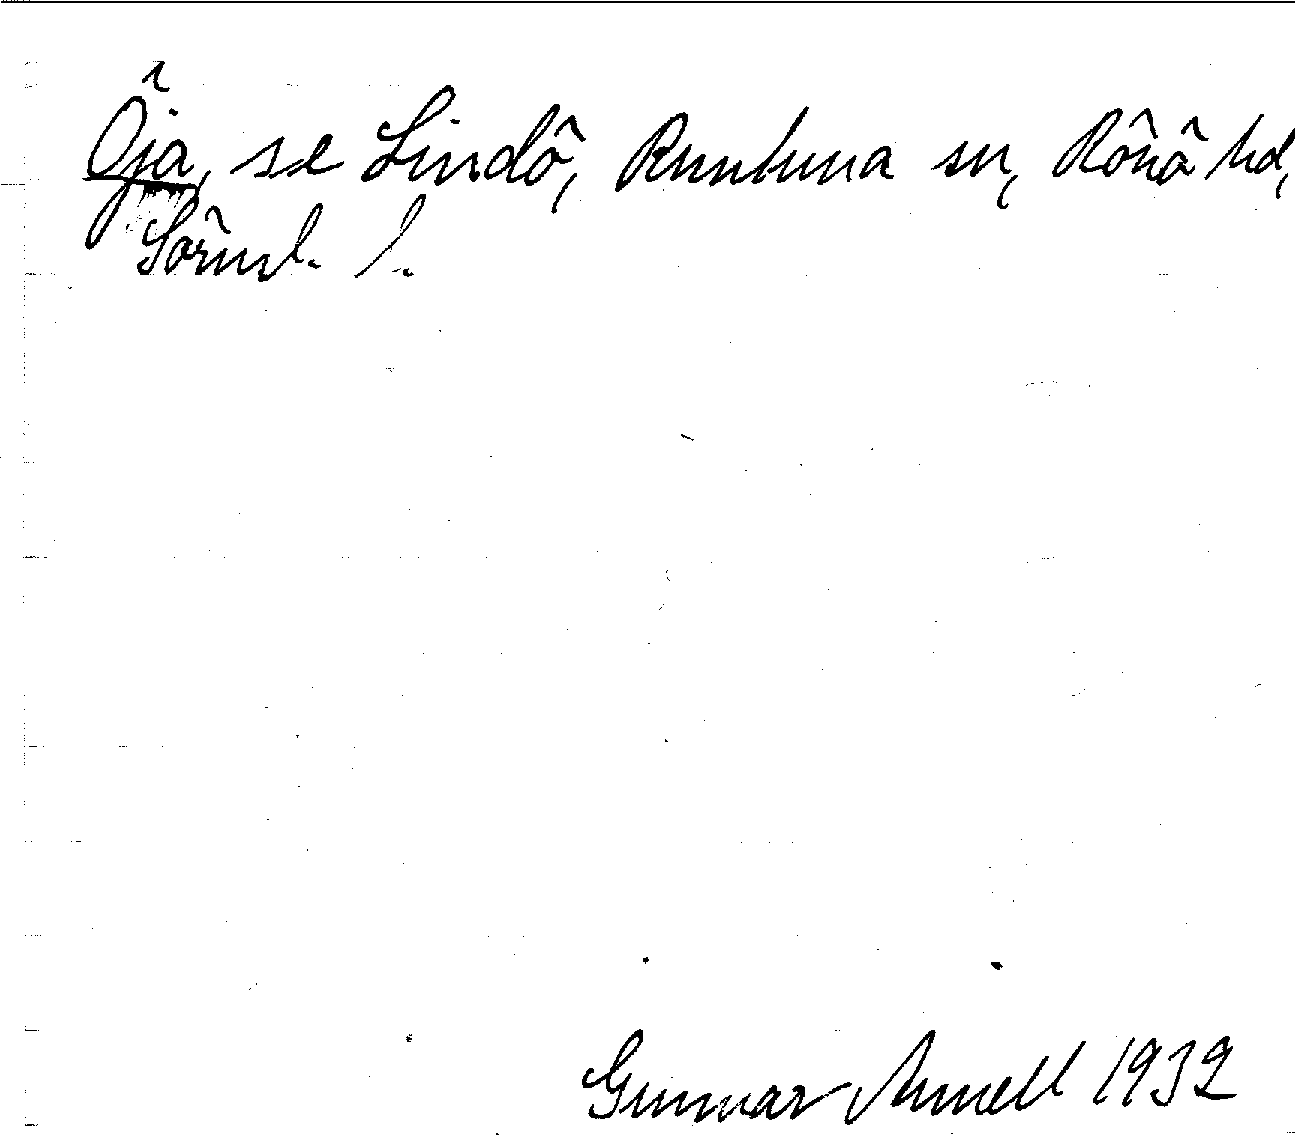 Öja, se Lindö, Runtuna sn, Rönö hd,
Sörml. l.
Gunnar Arnell 1932